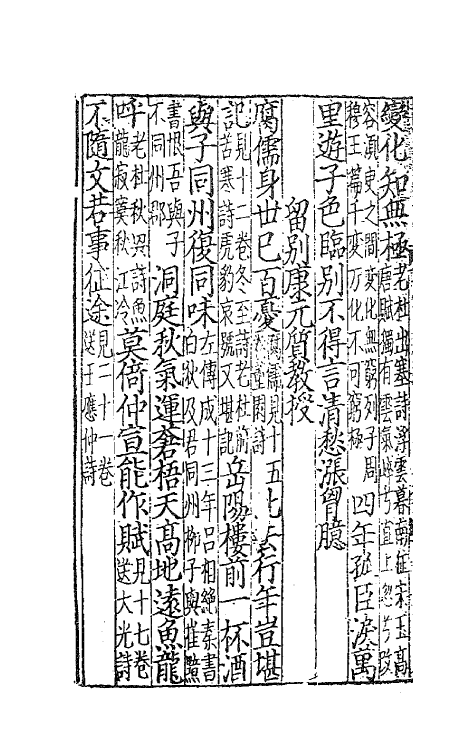 變化知無極老杜出塞詩浮雲暮南征宋玉高唐賦獨有雲氣崪兮直上忽兮改
容湏臾之間變化無窮列子周穆王篇千變万化不可窮極四年孤臣淚萬
里遊子色臨别不得言清愁漲胷臆
留别康元質教授
腐儒身世已百憂腐儒見十五閣詩此去行年豈堪
記見十二卷冬至詩老杜前苦寒詩虎豹哀號又堪記岳陽樓前一杯酒
與子同州復同味左傳成十三年呂相絶秦書白狄及君同州柳子與崔黯
書恨吾與子不同州部洞庭秋氣運蒼梧天髙地遠魚龍
呼老杜秋興詩魚龍寂寞秋江冷莫倚仲宣能作賦見十七卷送大光詩
不隨文若事征途見二十一卷送王應仲詩